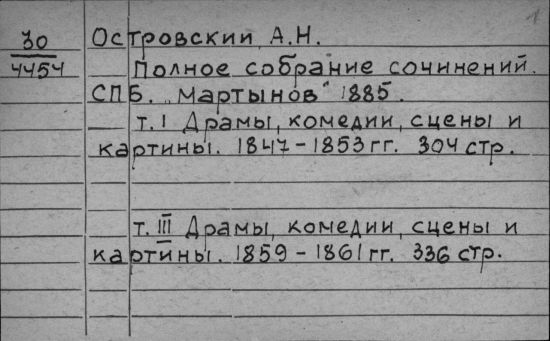 30
4454
Островский А.Н.
Полное собрание сочинений.
СПБ. „Мартынов" 1885.
т. I Драмы, комедии, сцены и
картины. 1847 - 1853 гг. 304 стр.
т. III Драмы, комедии, сцены и
картины. 1859 - 1861 гг. 336 стр.